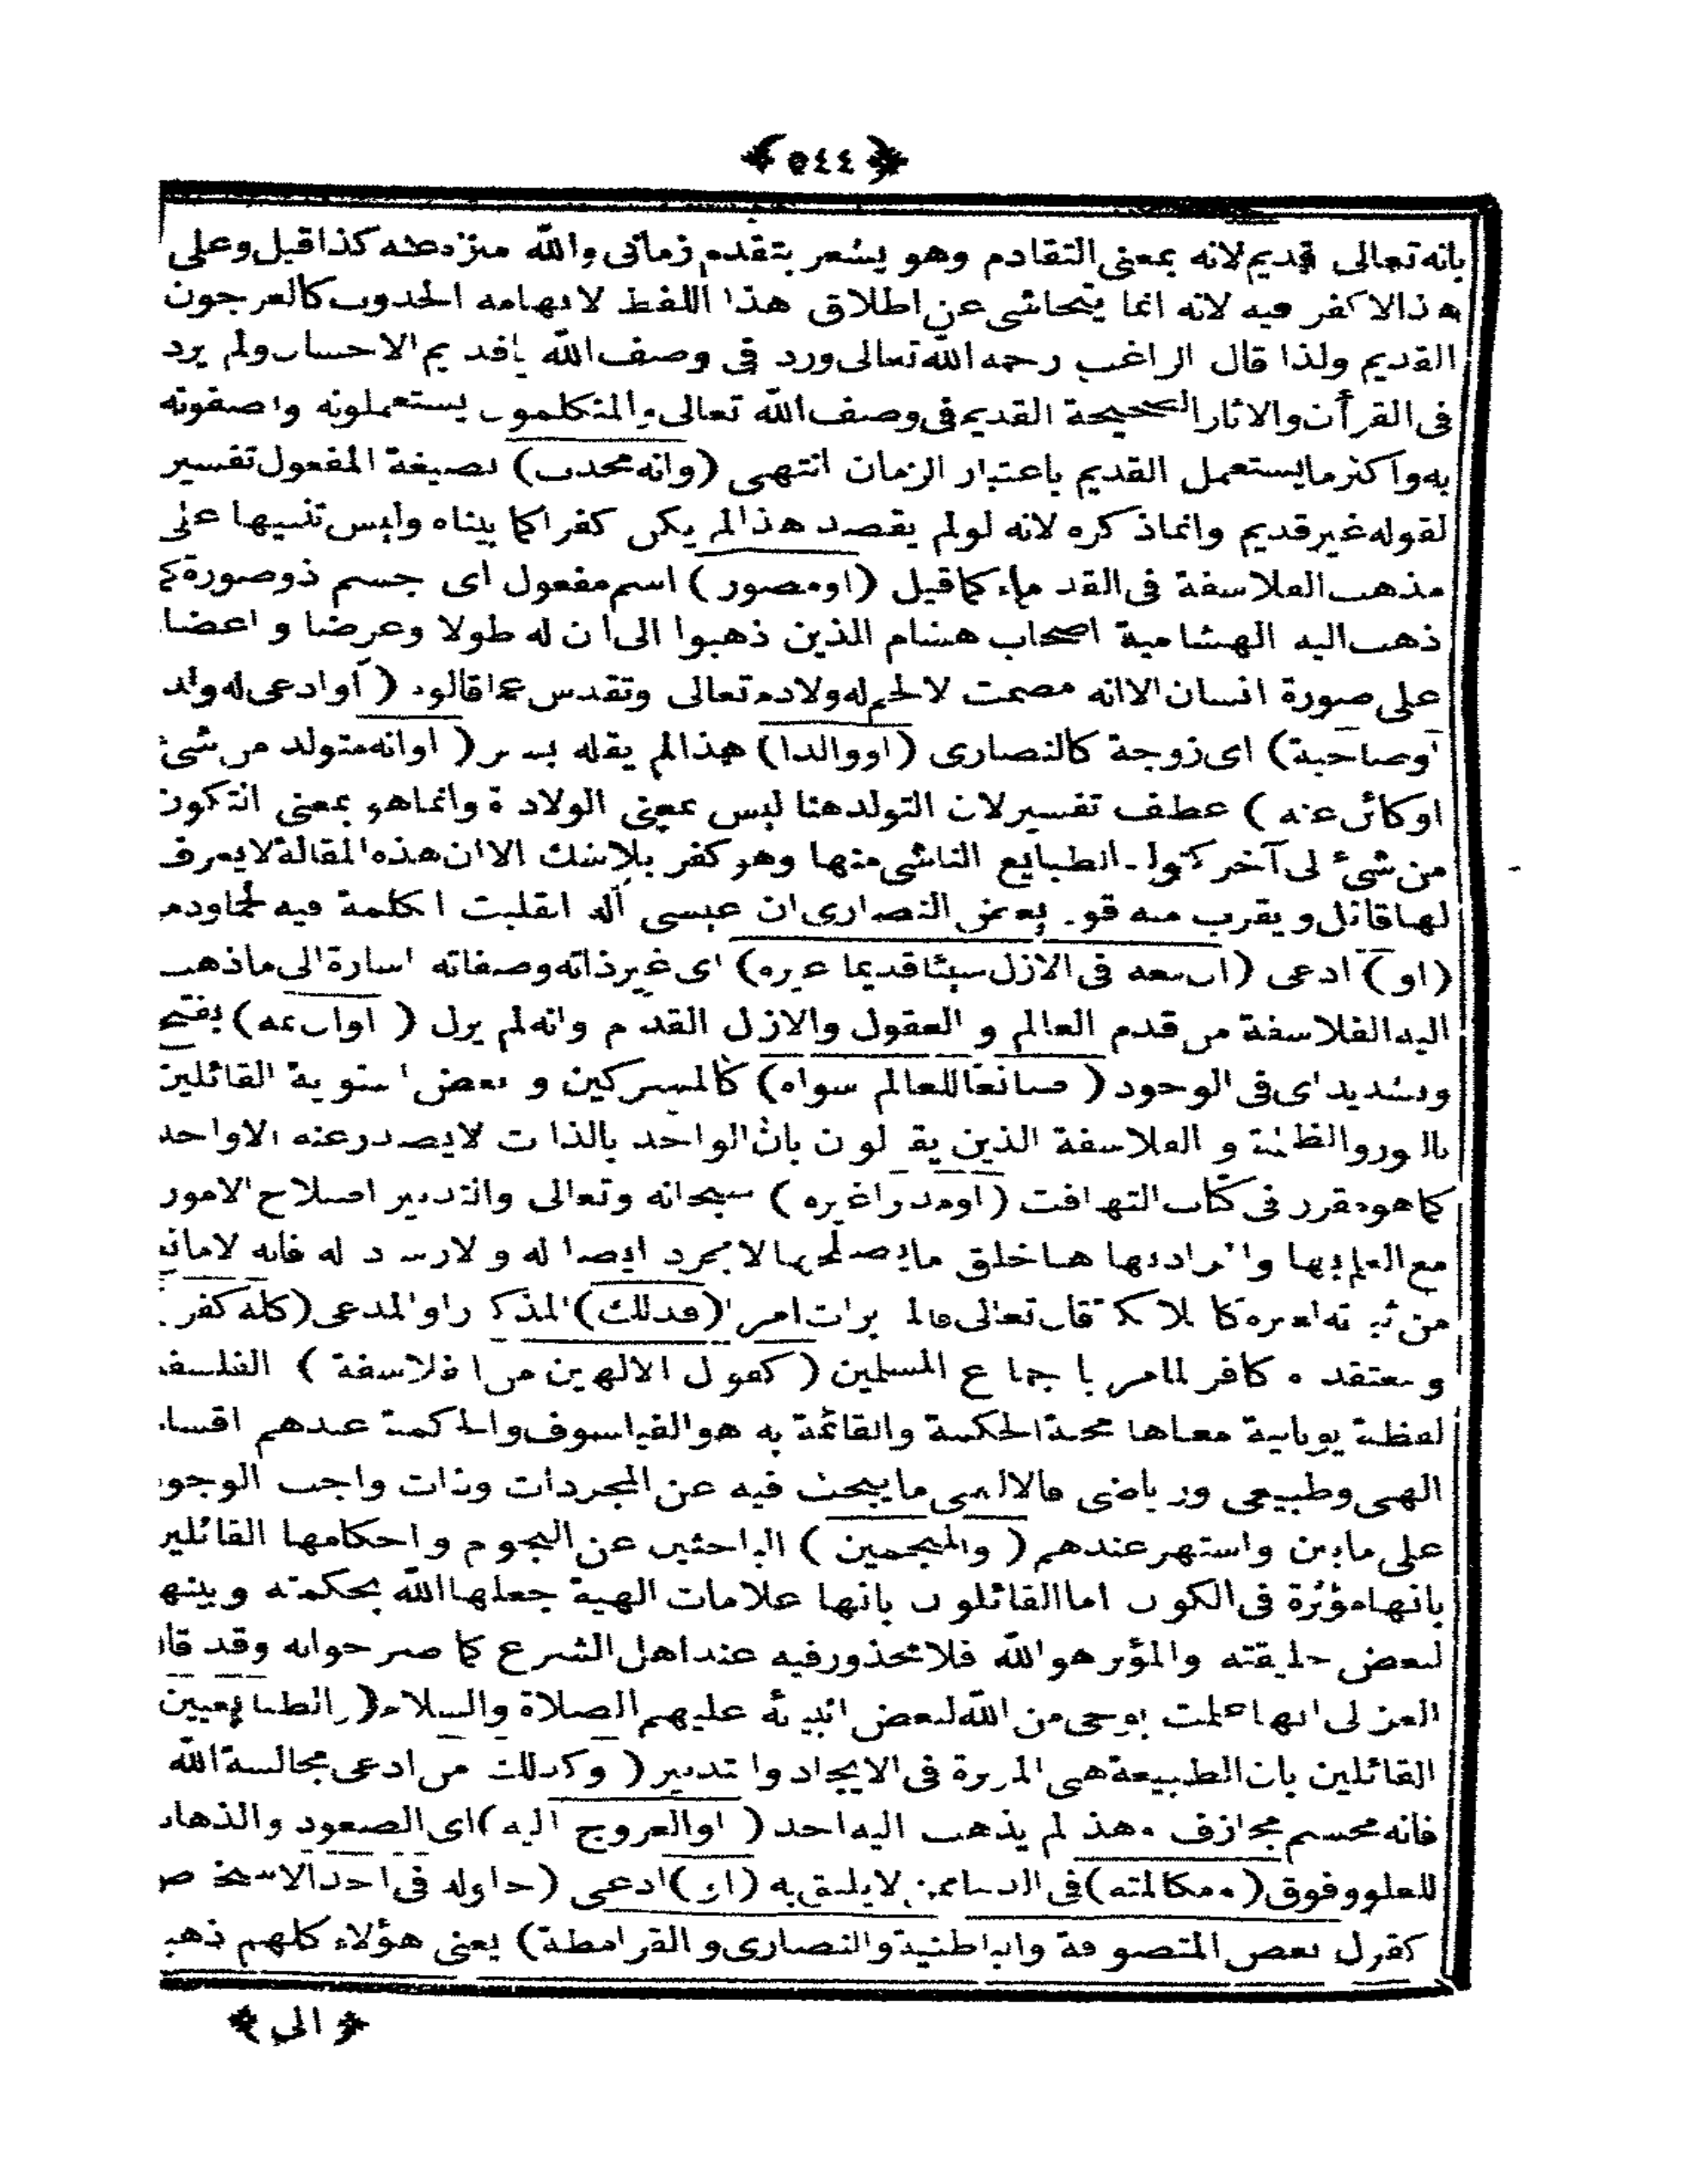 ﴿ ٥٤٤ ﴾
بانه تعالى قديم لانه بمعنى التقادم وهو يشعر بتقدم زمانى والله منزه عنه كذا قيل وعلى
هذا لا كفر فيه لانه انما يتحاشى عن اطلاق هذا اللفظ لايهامه الحدوث كالعرجون
القديم ولذا قال الراغب رحمه الله تعالى ورد فى وصف الله ياقديم الاحسان ولم يرد
فى القرأن والاثار الصحيحة القديم فى وصف الله تعالى والمتكلمون يستعملونه واصفونه
به واكثر ما يستعمل القديم باعتبار الزمان انتهى (وانه محدث) بصيغة المفعول تفسير
لقوله غير قديم وانما ذكره لانه لو لم يقصد هذا لم يكن كفرا كما بيناه وليس تنبيها على
مذهب الفلاسفة فى القدماء كما قيل (او مصور) اسم مفعول اى جسم ذو صورة كما
ذهب اليه الهشامية اصحاب هشام الذين ذهبوا الى ان له طولا وعرضا و اعضا
على صورة انسان الا انه مصمت لا لحم له ولا دم تعالى وتقدس عما قالوه (أو ادعى له ولد
أوصاحبة) اى زوجة كالنصارى (او والدا) هذا لم يقله بشر (اوانه متولد من شئ
اوكائن عنه) عطف تفسير لان التولد هنا ليس بمعنى الولادة وانما هو بمعنى التكون
من شئ الى آخر كتولد الطبايع الناشى منها وهو كفر بلا شك الا ان هذه المقالة لا يعرف
لها قائل ويقرب منه قول بعض النصارى ان عيسى آله انقلبت الكلمة فيه لحما ودم
(او) ادعى (ان معه فى الازل شيئا قديما غيره) اى غير ذاته وصفاته اشارة الى ما ذهب
اليه الفلاسفة من قدم العالم و العقول والازل القدم وانه لم يزل (اوان ثمه) بفتح
وتشديد اى فى الوجود (صانعا للعالم سواه) كالمشركين و بعض الثنوية القائلين
بالنور والظلمة و الفلاسفة الذين يقولون بان الواحد بالذات لايصدر عنه الا واحد
كما هو مقرر فى كتاب التهافت (اومدبرا غيره) سبحانه وتعالى والتدبير اصلاح الامور
مع العلم بها والمراد بها هنا خلق ما يصلحها لا مجرد ايصاله و لارشد له فانه لا مانع
من ثبوته لغيره كالملائكة قال تعالى فالمدبرات امرا (فذلك) المذكور او المدعى (كله كفر)
ومعتقده كافر لما مر باجماع المسلمين (كقول الالهين من الفلاسفة) الفلسفة
لفظة يونانية معناها محبة الحكمة والقائمة به هو الفيلسوف والحكمة عندهم اقسا
الهى وطبيعى ورياضى فالالهى ما يبحث فيه عن المجردات وذات واجب الوجو
على مابين واشتهر عندهم (والمنجمين) الباحثين عن النجوم و احكامها القائلين
بانها مؤثرة فى الكون اما القائلون بانها علامات الهية جعلها الله بحكمته وبينه
لبعض خليقته والمؤثر هو الله فلا محذور فيه عند اهل الشرع كما صرحوا به وقد قال
الغزالى انها علمت بوحى من الله لبعض انبيائه عليهم الصلاة والسلام (والطبايعيين
القائلين بان الطبيعة هى المدبرة فى الايجاد والتدبير (وكذلك من ادعى مجالسة الله
فانه مجسم مجازف وهذا لم يذهب اليه احد (اوالعروج اليه) اى الصعود والذهاب
للعلو وفوق (ومكالمته) فى الدنيا ممن لا يليق به (او) ادعى (حلوله فى احد الاشخاص
كقول بعض المتصوفة والباطنية والنصارى و القرامطة) يعنى هؤلاء كلهم ذهب
﴿ الى ﴾